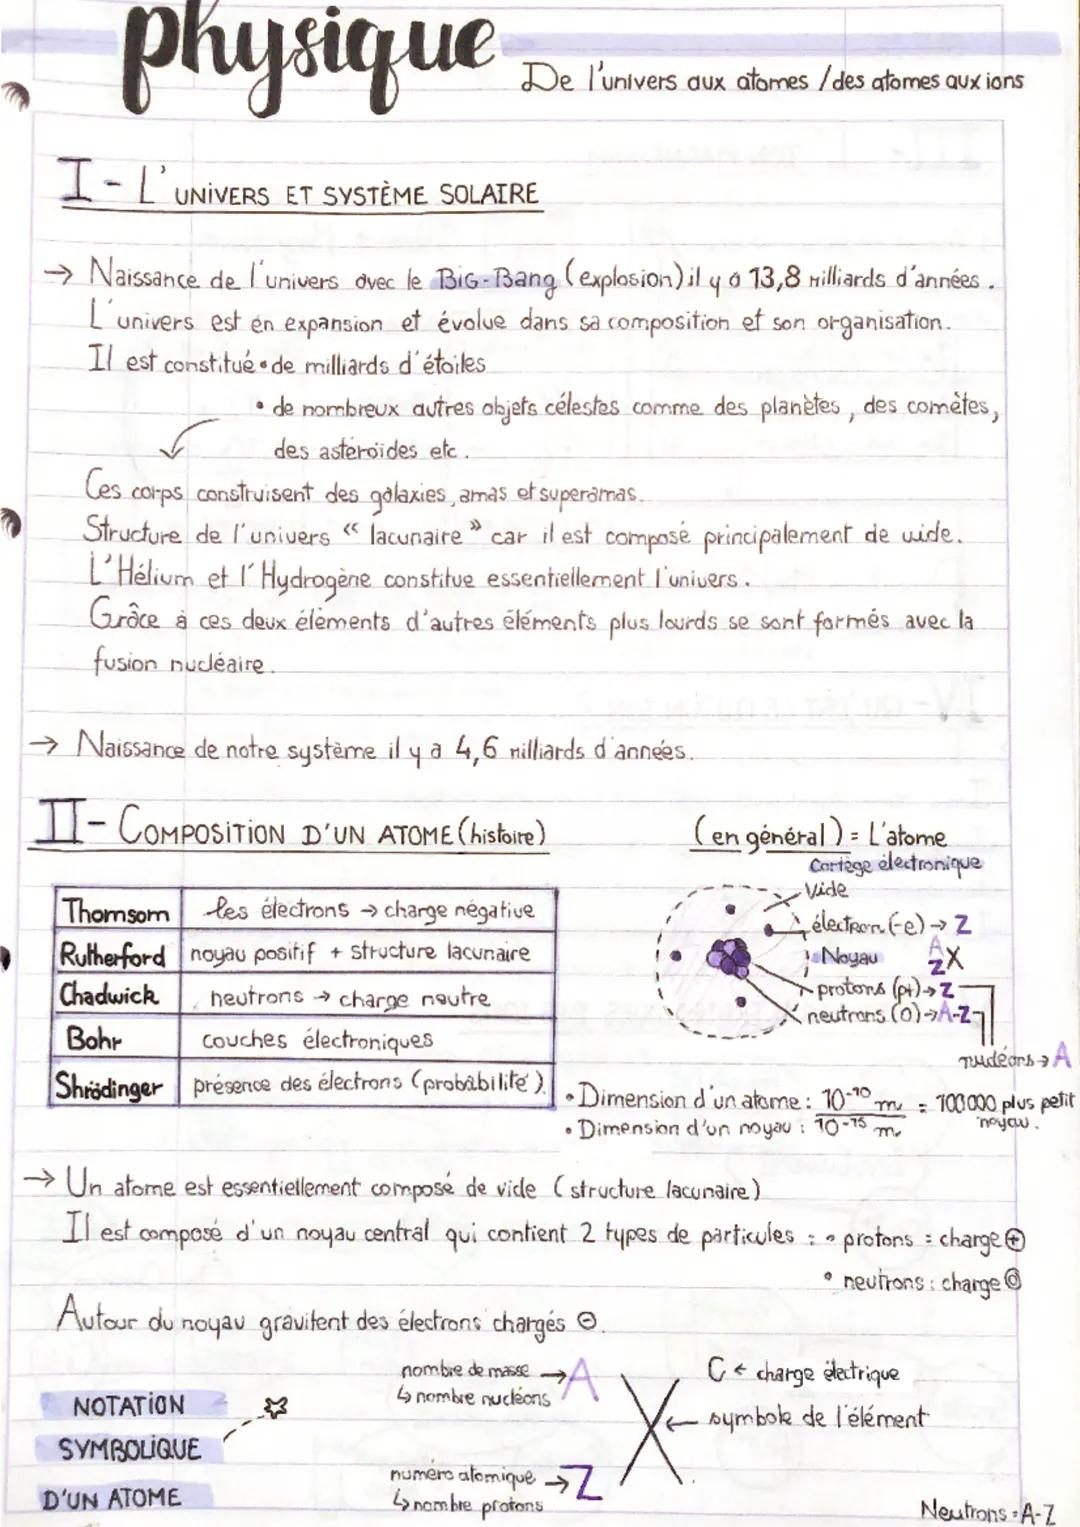 physique
De l'univers aux atomes / des atomes aux ions
I - L'UNIVERS ET SYSTÈME SOLAIRE
→ Naissance de l'univers avec le BIG-Bang (explosion) il y a 13,8 milliards d'années.
L'univers est en expansion et évolue dans sa composition et son organisation.
Il est constitué • de milliards d'étoiles
• de nombreux autres objets célestes comme des planètes, des comètes,
des astéroïdes etc.
Ces corps construisent des galaxies, amas et superamas.
Structure de l'univers « lacunaire » car il est composé principalement de vide.
L'Hélium et l'Hydrogène constitue essentiellement l'univers.
Grâce à ces deux éléments d'autres éléments plus lourds se sont formés avec la
fusion nucléaire.
→ Naissance de notre système il y a 4,6 milliards d'années.
II - COMPOSITION D'UN ATOME (histoire)
Thomsom les électrons → charge négative
Rutherford noyau positif + structure lacunaire
Chadwick neutrons → charge neutre
Bohr couches électroniques
Shrödinger présence des électrons (probabilité).
(en général) = L'atome
Cortège électronique
Vide
électron (-e) → Z
Noyau A Z X
protons (p+) → Z
neutrons (0) → A-Z
nucléons → A
• Dimension d'un atome : 10-10 m = 100000 plus petit
• Dimension d'un noyau : 10-15 m noyau.
→ Un atome est essentiellement composé de vide (structure lacunaire)
Il est composé d'un noyau central qui contient 2 types de particules : • protons : charge ⊕
• neutrons : charge 0
Autour du noyau gravitent des électrons chargés ⊖.
NOTATION
SYMBOLIQUE
D'UN ATOME
nombre de masse → A
↳ nombre nucléons
X
C ← charge électrique
← symbole de l'élément
numéro atomique → Z
↳ nombre protons
Neutrons = A-Z